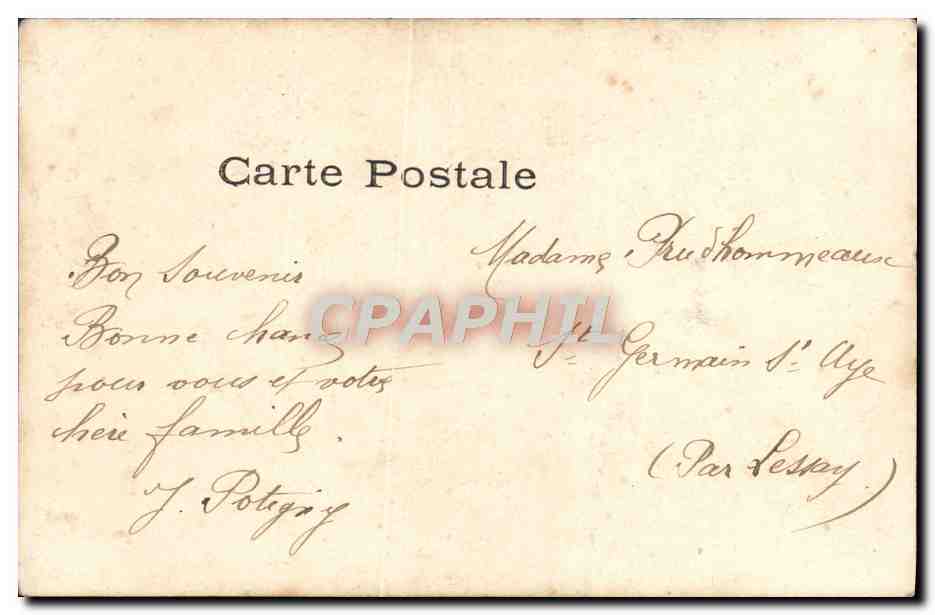 Carte Postale
Bon Souvenir
Bonne chance
pour vous et votre
chère famille.
J. Potigny
Madame Prudhommeaux
St Germain S' Aye
(Par Lessay)
CPAPHIL